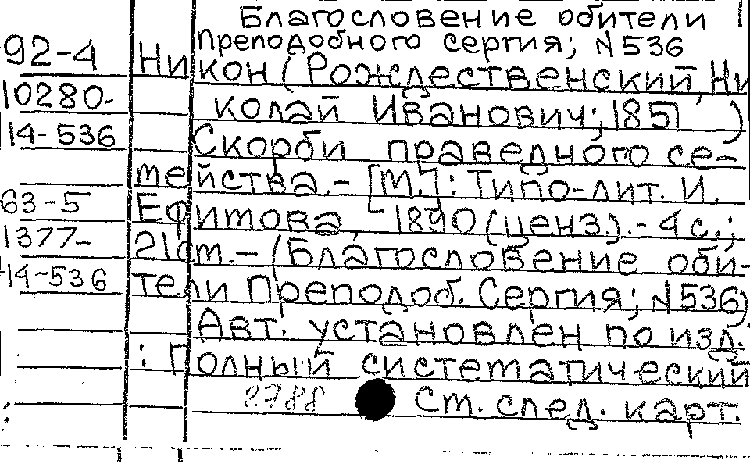 Благословение обители
Преподобного Сергия; N 536
92-4 Никон (Рождественский, Ни
10280- колай Иванович; 1851 )
14-536 Скорби праведного се-
мейства. - [М.]: Типо-лит. И.
63-5 Ефимова, 1890 (ценз.). - 4 с.;
1377- 21 см. - (Благословение оби-
14-536 тели Преподоб. Сергия; N 536)
Авт. установлен по изд.
: Полный систематический
8788 См. след. карт.